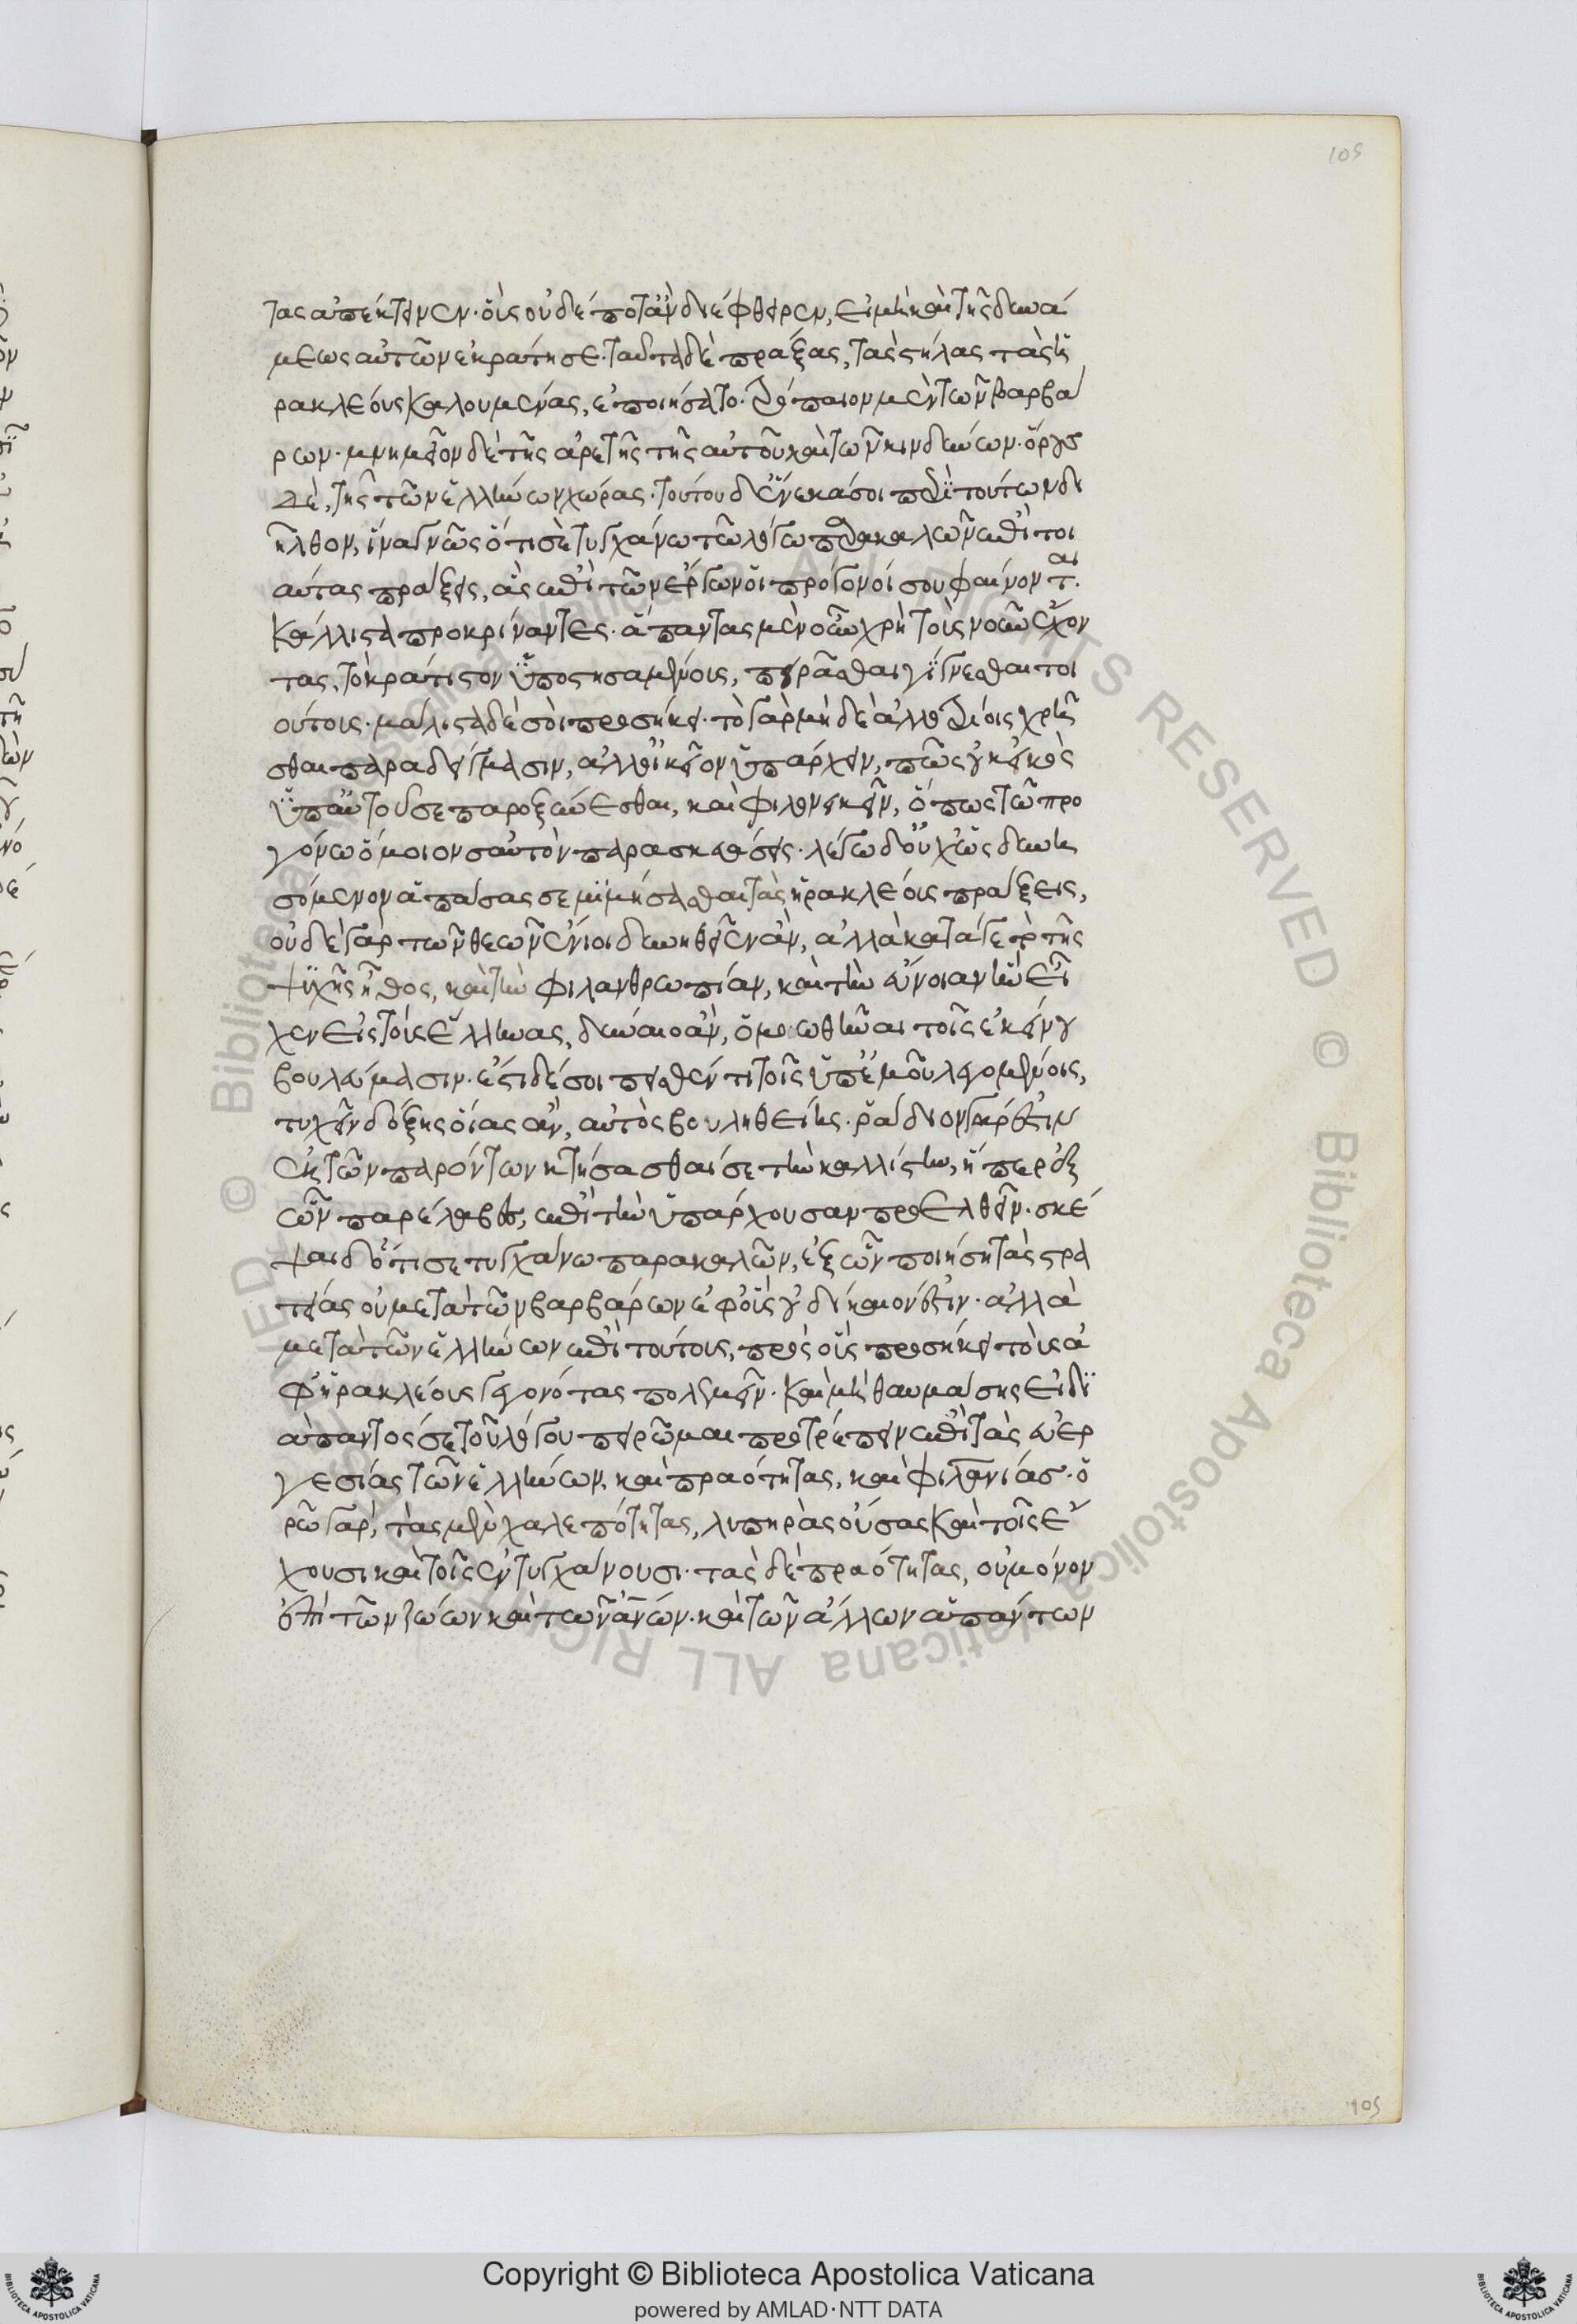 105
τας ἀπέκτεινεν· οἷς οὐδέποτ' ἂν διέφθειρεν, εἰ μὴ καὶ τῆς δυνά
μεως αὐτῶν ἐκράτησε. ταῦτα δὲ πράξας, τὰς στήλας τὰς ἡ
ρακλέους καλουμένας, ἐποιήσατο. τρόπαιον μὲν τῶν βαρβά
ρων· μνημεῖον δὲ τῆς ἀρετῆς τῆς αὐτοῦ καὶ τῶν κινδύνων· ὅρους
δὲ, τῆς τῶν ἑλλήνων χώρας. τούτου δ' ἕνεκά σοι περὶ τούτων δι
ῆλθον, ἵνα γνῷς ὅτι σὲ τυγχάνω τῷ λόγῳ παρακαλῶν ἐπὶ τοι
αύτας πράξεις, ἃς ἐπὶ τῶν ἔργων οἱ πρόγονοί σου φαίνονται
κάλλιστα προκρίναντες· ἅπαντας μὲν οὖν χρὴ τοὺς νοῦν ἔχον
τας, τὸν κράτιστον ὑποστησαμένοις, πειρᾶσθαι γίγνεσθαι τοι
ούτοις· μάλιστα δὲ σοὶ προσήκει. τὸ γὰρ μὴ δὲ ἀλλοτρίοις χρῆ
σθαι παραδείγμασιν, ἀλλ' οἰκεῖον ὑπάρχειν, πῶς οὐκ εἰκὸς
ὑπ' αὐτοῦ σε παροξύνεσθαι, καὶ φιλονεικεῖν, ὅπως τῷ προ
γόνῳ ὅμοιον σαυτὸν παρασκευάσεις· λέγω δ' οὐχ ὡς δυνη
σόμενον ἁπάσας σε μιμήσασθαι τὰς ἡρακλέους πράξεις,
οὐδὲ γὰρ τῶν θεῶν ἔνιοι δυνηθεῖεν ἂν, ἀλλὰ κατά γε τὸ τῆς
ψυχῆς ἦθος, καὶ τὴν φιλανθρωπίαν, καὶ τὴν εὔνοιαν ἣν εἶ
χεν εἰς τοὺς ἕλληνας, δύναιο ἂν, ὁμοιωθῆναι τοῖς ἐκείνου
βουλεύμασιν. ἔστι δέ σοι πεισθέντι τοῖς ὑπ' ἐμοῦ λεγομένοις,
τυχεῖν δόξης οἵας ἂν, αὐτὸς βουληθείης. ῥᾴδιον γάρ ἐστιν
ἐκ τῶν παρόντων κτήσασθαί σε τὴν καλλίστην, ἤπερ ἐξ
ὧν παρέλαβες, ἐπὶ τὴν ὑπάρχουσαν προελθεῖν. σκέ
ψαι δ' ὅτι σε τυγχάνω παρακαλῶν, ἐξ ὧν ποιήσῃ τὰς στρα
τείας οὐ μετὰ τῶν βαρβάρων ἐφ' οὓς οὐ δίκαιόν ἐστιν· ἀλλὰ
μετὰ τῶν ἑλλήνων ἐπὶ τούτους, πρὸς οὓς προσήκει τοὺς ἀ
φ' ἡρακλέους γεγονότας πολεμεῖν. καὶ μὴ θαυμάσῃς εἰ δι
ὰ παντός σε τοῦ λόγου πειρῶμαι προτρέπειν ἐπὶ τὰς εὐερ
γεσίας τῶν ἑλλήνων, καὶ πραότητας, καὶ φιλανίας. ὁ
ρῶ γὰρ, τὰς μὲν χαλεπότητας, λυπηρὰς οὔσας καὶ τοῖς ἔ
χουσι καὶ τοῖς ἐντυγχάνουσι. τὰς δὲ πραότητας, οὐ μόνον
ἐπὶ τῶν ζώων καὶ τῶν ἀνῶν. καὶ τῶν ἄλλων ἁπάντων
105
Copyright © Biblioteca Apostolica Vaticana
powered by AMLAD·NTT DATA